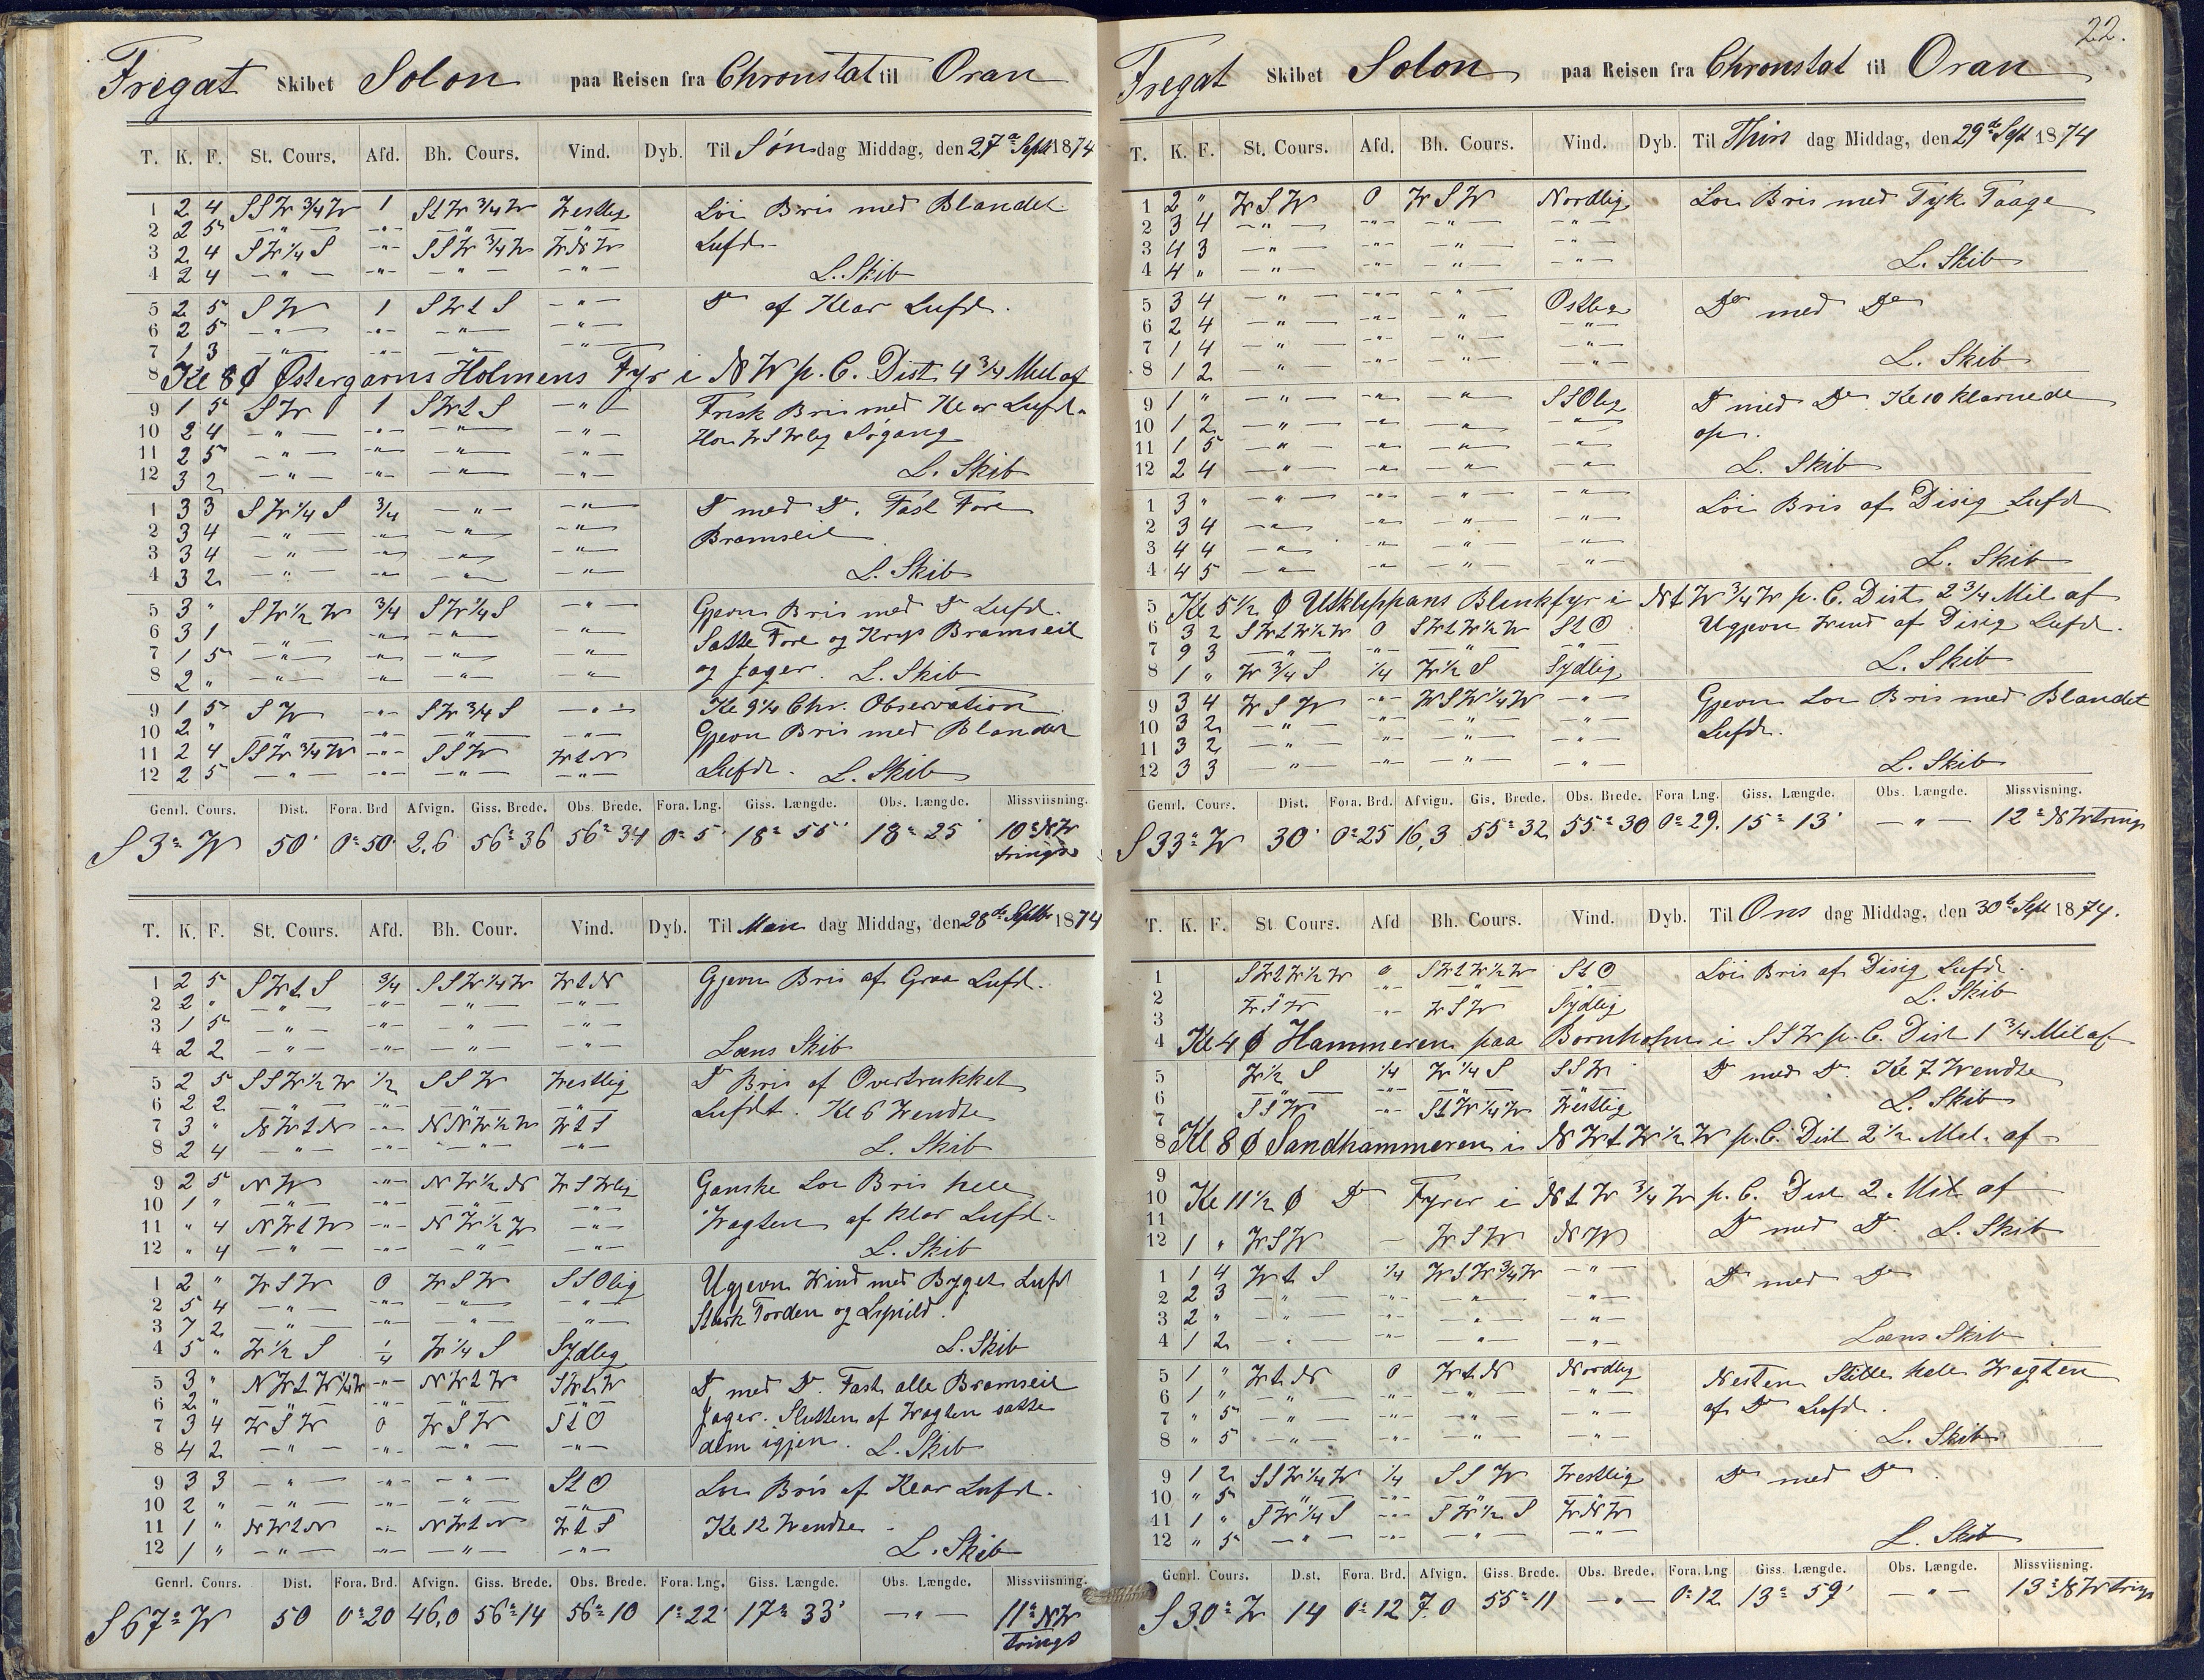 Fregat Skibet Solon paa Reisen fra Chronstat til Oran
T. K. F. St. Cours. Afd. Bh. Cours. Vind. Dyb. Til Søndag Middag, den 27de Septb 1874
1 2 4 SSW 3/4 W 1 StW 3/4 W Westlig Løi Bris med Blandet
2 2 5 — " — - " - — " — — " — Lufd
3 2 4 SW 1/4 S - " - SSW 3/4 W WNW
4 2 4 — " — - " - — " — — " — L. Skib
5 2 5 SW 1 SWtS — " — Do af Klar Lufd.
6 2 5 — " — - " - — " — — " —
7 1 3 — " — - " - — " — — " —
8 Kl 8 Ø Østergarns Holmens Fyr i NW p. C. Dist. 4 3/4 Mil af
9 1 5 SW 1 SWtS — " — Frisk Bris med Klar Lufd.
10 2 4 — " — - " - — " — — " — Hou WSWlig Søgang
11 2 5 — " — - " - — " — — " —
12 3 2 — " — - " - — " — — " — L. Skib
1 3 3 SW 1/4 S 3/4 — " — — " — Do med Do. Fast Fore
2 3 4 — " — - " - — " — — " — Bramseil
3 3 4 — " — - " - — " — — " —
4 3 2 — " — - " - — " — — " — L. Skib
5 3 " SW 1/2 W 3/4 SW 1/4 S — " — Gjevn Bris med Do Lufd.
6 3 1 — " — - " - — " — — " — Satte Fore og Krys Bramseil
7 1 5 — " — - " - — " — — " — og Jager. L. Skib
8 2 " — " — - " - — " — — " —
9 1 5 SW - " - SW 3/4 S — " — Kl 9 1/4 Chr. Observation
10 2 " — " — - " - — " — — " — Gjevn Bris med Blandet
11 2 4 SSW 3/4 W - " - SSW WtN
12 2 5 — " — - " - — " — — " — Lufd. L. Skib
Genrl. Cours. Dist. Fora. Brd Afvign. Giss. Brede. Obs. Brede. Fora. Lng. Giss. Længde. Obs. Længde. Missviisning.
S 3° W 50' 0° 50' 2.6 56° 36 56° 34 0° 5' 18° 55' 18° 25' 10° NW
trings
T. K. F. St. Cours. Afd. Bh. Cour. Vind. Dyb. Til Mandag Middag, den 28de Septbr 1874
1 2 5 SWtS 3/4 SSW 1/4 W WtN Gjevn Bris af Graa Lufd.
2 2 " — " — - " - — " — — " —
3 1 5 — " — - " - — " — — " —
4 2 2 — " — - " - — " — — " — Læns Skib
5 2 5 SSW 1/2 W 1/2 SSW Westlig Do Bris af Overtrukket
6 2 2 — " — - " - — " — — " — Lufdt. Kl 6 Wendte
7 3 " NWtN - " - NNW 1/2 W WtS
8 2 4 — " — - " - — " — — " — L. Skib
9 2 5 NW - " - NW 1/2 N WSWlig Ganske Løi Bris hele
10 1 " — " — - " - — " —
11 " 4 NWtW - " - NW 1/2 W — " — Wagten af klar Lufd.
12 " 4 — " — - " - — " — — " — L. Skib
1 2 " WSW 0 WSW SSOlig Ugjevn Wind med Byget Lufd
2 5 4 — " — - " - — " — — " — Stærk Torden og Lynild.
3 7 2 — " — - " - — " — — " —
4 5 " W 1/2 S 1/4 W 1/4 S Sydlig L. Skib
5 3 " NWtW 1/4 W - " - NWtW SWtW Do med Do. Fast alle Bramseil
6 2 " — " — - " - — " — — " — Jager. Slutten af Wagten satte
7 3 4 WSW 0 WSW StO
8 4 2 — " — - " - — " — — " — dem igjen. L. Skib
9 3 3 — " — - " - — " — StO Løi Bris af Klar Lufd.
10 2 " — " — - " - — " — — " —
11 1 " NWtN - " - NWtN WtS Kl 12 Wendte
12 1 " — " — - " - — " — — " — L. Skib
Genrl. Cours. Dist. Fora. Brd. Afvign. Giss. Brede. Obs. Brede. Fora. Lng. Giss. Længde. Obs. Længde. Missviisning.
S 67° W 50 0° 20 46,0 56° 14 56° 10 1° 22' 17° 33' — " — 11° NW
trings
22.
Fregat Skibet Solon paa Reisen fra Chronstat til Oran
T. K. F. St. Cours. Afd. Bh. Cours. Vind. Dyb. Til Thirsdag Middag, den 29de Sept 1874
1 2 " WSW 0 WSW Nordlig Løi Bris med Tyk Taage
2 3 4 — " — - " - — " — — " —
3 4 3 — " — - " - — " — — " —
4 4 " — " — - " - — " — — " — L. Skib
5 3 4 — " — - " - — " — Ostlig Do med Do
6 2 4 — " — - " - — " — — " —
7 1 4 — " — - " - — " — — " —
8 1 2 — " — - " - — " — — " — L. Skib
9 1 " — " — - " - — " — SSOlig Do med Do. Kl 10 klarnede
10 1 2 — " — - " - — " — — " — op.
11 1 5 — " — - " - — " — — " —
12 2 4 — " — - " - — " — — " — L. Skib
1 3 " — " — - " - — " — — " — Løi Bris af Disig Lufd
2 3 4 — " — - " - — " — — " —
3 4 4 — " — - " - — " — — " —
4 4 5 — " — - " - — " — — " — L. Skib
5 Kl 5 1/2 Ø Utklippans Blinkfyr i NtW 3/4 W p. C. Dist. 2 3/4 Mil af
6 3 2 SWtW 1/2 W 0 SWtW 1/2 W StO Ugjevn Wind af Disig Lufd.
7 9 3 — " — - " - — " — — " —
8 1 " W 3/4 S 1/4 W 1/2 S Sydlig L. Skib
9 3 4 WSW - " - WSW 1/4 W — " — Gjevn Løi Bris med Blandet
10 3 2 — " — - " - — " — — " — Lufd.
11 3 2 — " — - " - — " — — " —
12 3 3 — " — - " - — " — — " — L. Skib
Genrl. Cours. Dist. Fora. Brd. Afvign. Gis. Brede. Obs. Brede. Fora Lng. Giss. Længde. Obs. Længde. Missviisning.
S 33° W 30' 0° 25 16,3 55° 32 55° 30 0° 29. 15° 13' — " — 12° NWtrings
T. K. F. St Cours. Afd Bh. Cours. Vind. Dyb. Til Onsdag Middag, den 30de Sept 1874.
1 SWtW 1/2 W 0 SWtW 1/2 W StO Løi Bris af Disig Lufd.
2 — " — - " - — " — — " — L. Skib
3 WSW - " - WSW Sydlig
4 Kl 4 Ø Hammeren paa Bornholm i SSW p. C. Dist 1 3/4 Mil af
5 W 1/2 S 1/4 W 1/4 S SSW Do med Do. Kl 7 Wendte
6 — " — - " - — " — — " — L. Skib
7 SSW - " - StW 1/4 W Westlig
8 Kl 8 Ø Sandhammeren i NWtW 1/2 W p. C. Dist 2 1/2 Mil. af
9
10 Kl 11 1/2 Ø Do Fyrer i NtW 3/4 W p. C. Dist 2 Mil af
11 Do med Do. L. Skib
12 1 " WSW — WSW NW
1 1 4 WtS 1/4 WSW 3/4 W — " — Do med Do
2 2 3 — " — - " - — " — — " —
3 2 " — " — - " - — " — — " —
4 1 2 — " — - " - — " — — " — Læns Skib
5 1 " WtN 0 WtN Nordlig Nesten Stille hele Wagten
6 1 " — " — - " - — " — — " — af Do Lufd.
7 " 5 — " — - " - — " — — " —
8 " 5 — " — - " - — " — — " — L. Skib
9 1 2 SSW 1/4 W 1/4 SSW Westlig Do med Do.
10 " 5 — " — - " - — " — — " —
11 1 " SW 1/4 S - " - SW 1/2 S WNW
12 " 5 — " — - " - — " — — " — L. Skib
Genrl. Cours. Dist. Fora. Brd. Afvign. Giss. Brede. Obs. Brede. Fora. Lng Giss. Længde. Obs. Længde. Missviisning.
S 30° W 14 0° 12 7.0 55° 11 — " — 0° 12 13° 59' — " — 13° NWtrings